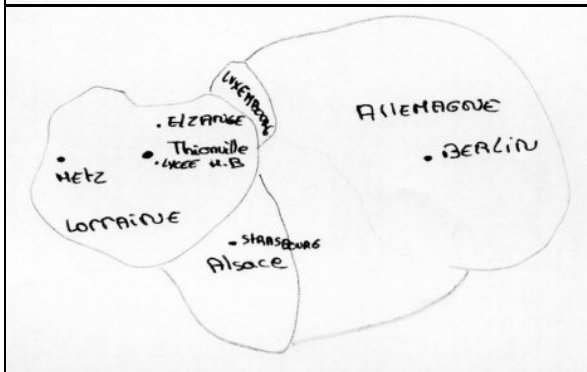 LUXEMBOURG
ALLEMAGNE
. ELZANGE
• Thionville
. LYCEE H.B
• BERLIN
• METZ
LORRAINE
• STRASBOURG
Alsace